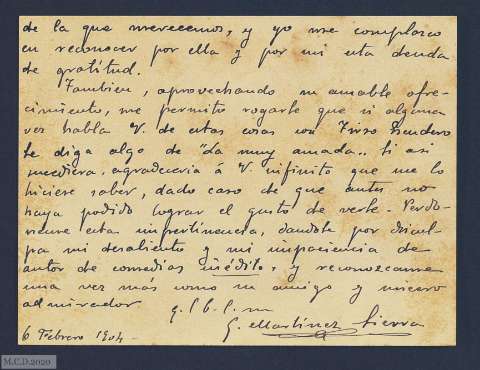 de la que merecemos, y yo me complazco
en reconocer por ella y por mi esta deuda
de gratitud.
Tambien, aprovechando su amable ofre-
cimiento, me permito rogarle que si alguna
vez habla V. de estas cosas con Tirso Escudero
le diga algo de "La muy amada„. Si asi
sucediera, agradeceria á V. infinito que me lo
hiciese saber, dado caso de que antes no
haya podido lograr el gusto de verle. Perdo-
neme esta impertinencia, dandole por discul-
pa mi desaliento y mi impaciencia de
autor de comedias inédito, y reconozcame
una vez más como su amigo y sincero
admirador
q. l b. l. m
G. Martinez Sierra
6 Febrero 1904-
M.C.D.2020